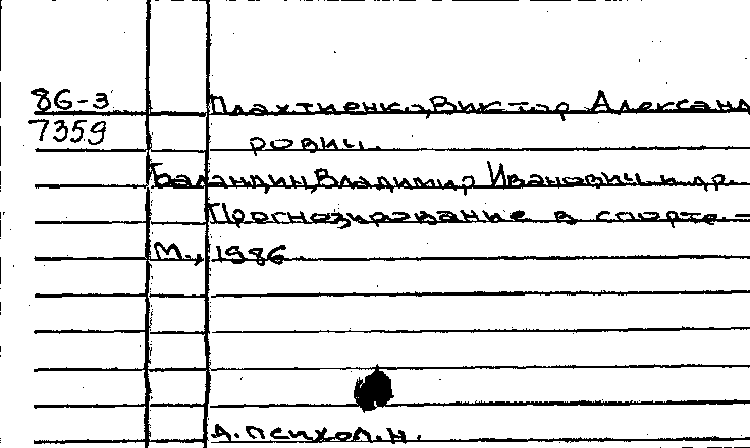 86-3 Плахтиенко, Виктор Александ
7359 рович.
Баландин, Владимир Иванович и др.
Прогнозирование в спорте. -
М., 1986.
д. психол. н.